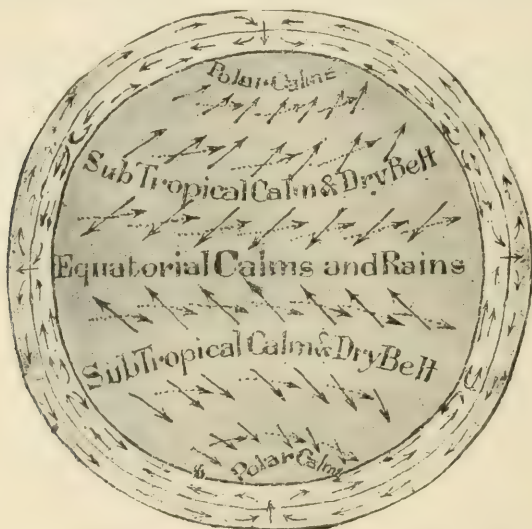 Polar Calms
SubTropical Calm & Dry Belt
Equatorial Calms and Rains
SubTropical Calm & Dry Belt
Polar Calms